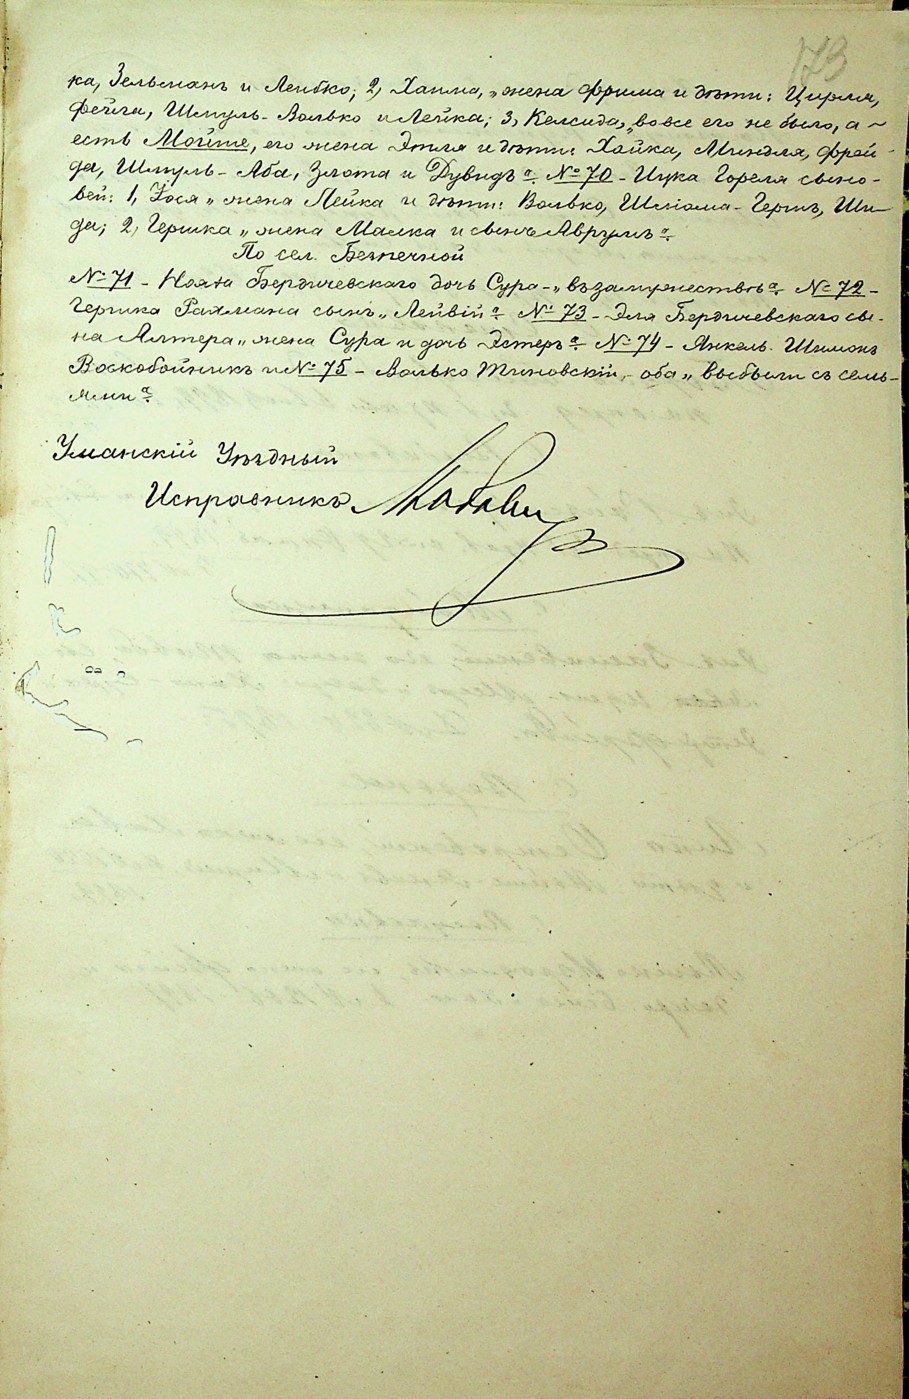 173
ка, Зельманъ и Лейбко; 2, Хаима, „жена Фрима и дѣти: Цирля,
Фейга, Шмуль-Волько и Лейка; 3, Келсида, „вовсе его не было, а ~
есть Мойше, его жена Этля и дѣти Хайка, Миндля, Фрей-
да, Шмуль-Аба, Злота и Дувидъ“. № 70 - Ицка Гореля сыно-
вей: 1, Іося „жена Лейка и дѣти: Волько, Шліома-Гершъ, Ши-
да; 2, Гершка „жена Малка и сынъ Аврумъ“.
По сел. Безпечной
№ 71 - Нояха Бердичевскаго дочь Сура - „въ замужествѣ“. № 72 -
Гершка Рахмана сынъ „Лейвій“. № 73 - Эля Бердичевскаго сы-
на Алтера „жена Сура и дочь Эстеръ“. № 74 - Янкель Шимонъ
Воскобойникъ и № 75 - Волько Тиновскій, - оба „выбыли съ семь-
ями“.
Уманскій Уѣздный
Исправникъ